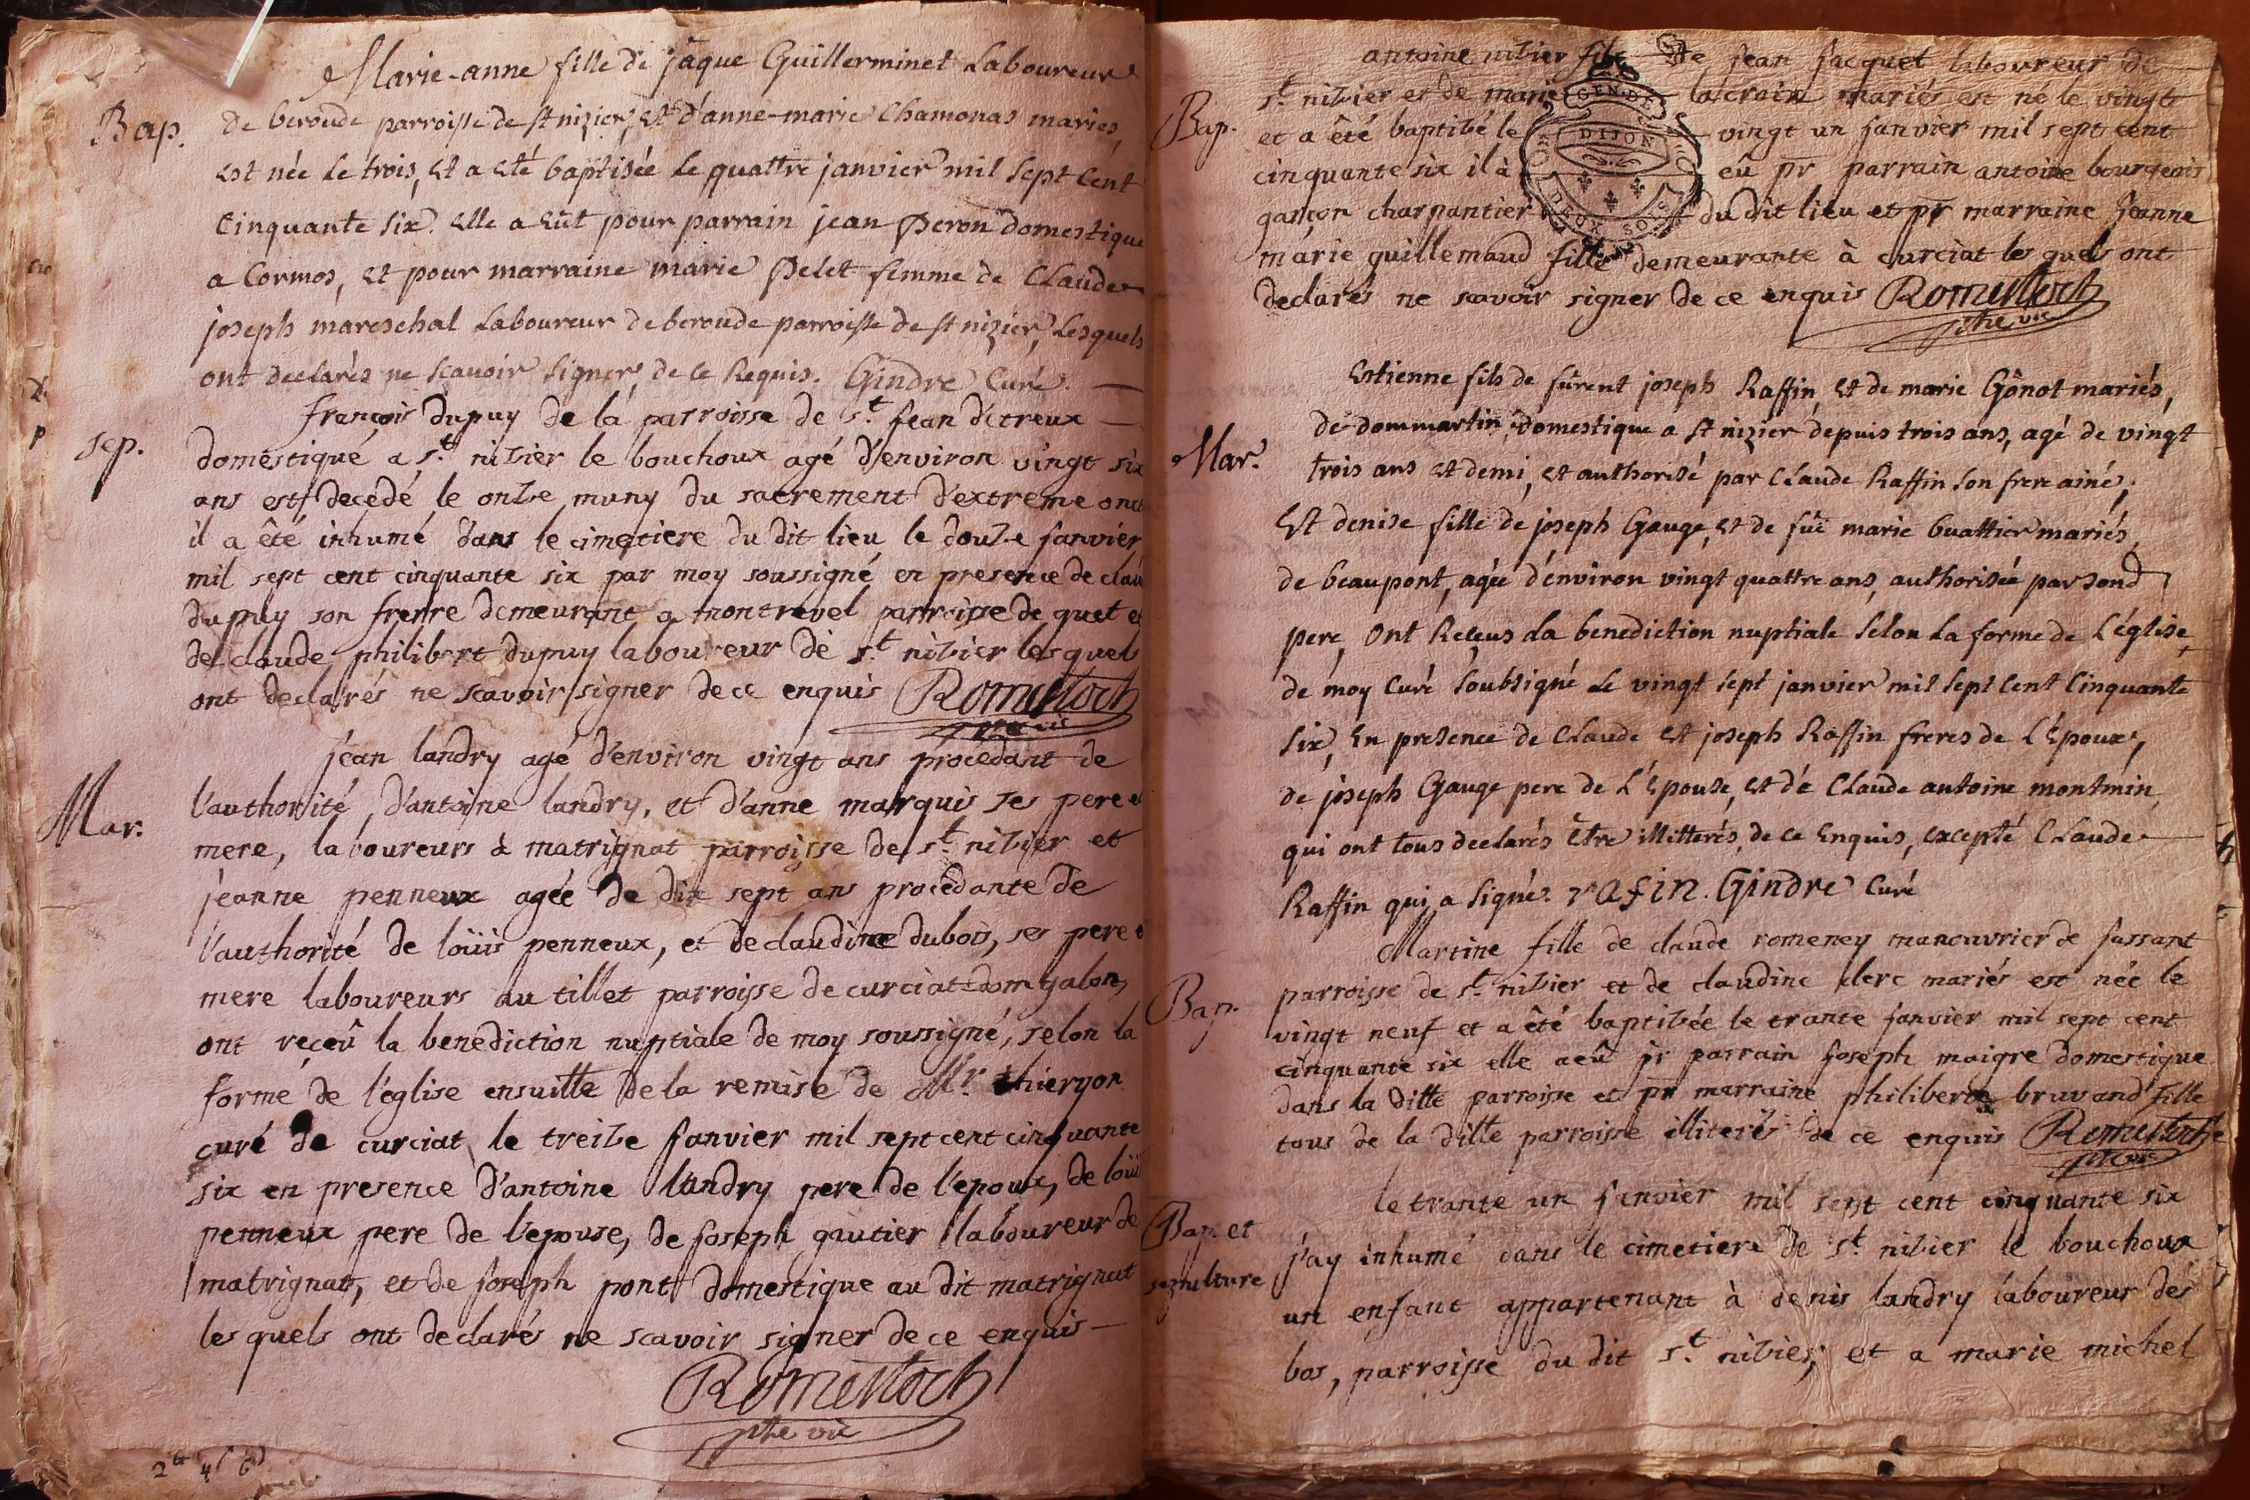 Marie-anne fille de jâque Guillerminet Laboureur
Bap.
de beroude parroisse de st nizier, et d'anne-marie Chamonas maries,
est née le trois, et a eté baptisée le quattre janvier mil sept cent
Cinquante six. elle a eût pour parrain jean Peron domestique
a Cormos, et pour marraine marie Pelet femme de Claude
joseph mareschal Laboureur de beroude parroisse de st nizier, Lesquels
ont declarés ne scavoir signer, de ce Requis. Gindre Curé.
françois dupuy de la parroisse de st. jean d'etreux
sep.
domestique a st. nizier le bouchoux agé d'environ vingt six
ans est decedé le onze muny du sacrement d'extreme onct
il a êté inhumé dans le cimetiere du dit lieu le douze janvier
mil sept cent cinquante six par moy soussigné en presence de clau
dupuy son frerre demeurant a montrevel parroisse de quet et
de claude philibert dupuy laboureur de st. nizier les quels
ont declarés ne scavoir signer de ce enquis Romestoch
jean landry agé d'environ vingt ans procedant de
Mar.
l'authorité, d'antoine landry, et d'anne marquis ses pere et
mere, laboureurs à matrignat parroisse de st. nizier et
jeanne penneux agée de dix sept ans procedante de
l'authorité de loüis penneux, et de claudine dubois, ses pere e
mere laboureurs au tillet parroisse de curciat-domgalon,
ont reçeû la benediction nuptiale de moy soussigné, selon la
forme de l'église ensuitte de la remise de Mr. thieryon
curé de curciat le treize janvier mil sept cent cinquante
six en presence d'antoine landry pere de l'epoux, de loüi
penneux pere de l'epouse, de joseph gautier laboureur de
matrignat, et de joseph pont domestique au dit matrignat
les quels ont declarés ne scavoir signer de ce enquis
Romestoch
ptre vic
antoine nizier fils de jean jacquet laboureur de
Bap.
st. nizier et de marie lacroix mariés est né le vingt
et a êté baptizé le vingt un janvier mil sept cent
cinquante six il à eû pr parrain antoine bourgeois
garçon charpantier du dit lieu et pr marraine jeanne
marie guillemaud fille demeurante à curciat les quels ont
declarés ne scavoir signer de ce enquis Romestoch
ptre vic
GEN. DE
DIJON
DEUX SOLS
Estienne fils de fûrent joseph Raffin, et de marie Gônot mariés,
Mar.
de dommartin, domestique a st nizier depuis trois ans, agé de vingt
trois ans et demi, et authorisé par Claude Raffin son frere ainé,
Et denise fille de joseph Gauge, et de fûe marie buattier mariés,
de beaupont, agée d'environ vingt quattre ans, authorisée par sond
pere, ont Reçeus La benediction nuptiale selon La forme de L'église
de moy Curé soubsigné Le vingt sept janvier mil sept cent Cinquante
six, En presence de Claude et joseph Raffin freres de L'Epoux,
de joseph Gauge pere de L'Epouse, et de Claude antoine montmin,
qui ont tous declarés être illitterés, de ce Enquis, excepté Claude
Raffin qui a signé. rafin. Gindre Curé
Martine fille de claude romeney manouvrier de fassant
Bap.
parroisse de st. nizier et de claudine clerc mariés est née le
vingt neuf et a êté baptizée le trante janvier mil sept cent
cinquante six elle a eû pr parrain joseph maigre domestique
dans la ditte parroisse et pr marraine philiberte bruvand fille
tous de la ditte parroisse illiterés de ce enquis Romestoch
ptre vic
le trante un janvier mil sept cent cinquante six
Bap. et
j'ay inhumé dans le cimetiere de st. nizier le bouchoux
sepulture
un enfant appartenant à denis landry laboureur des
bos, parroisse du dit st. nizier, et a marie michel